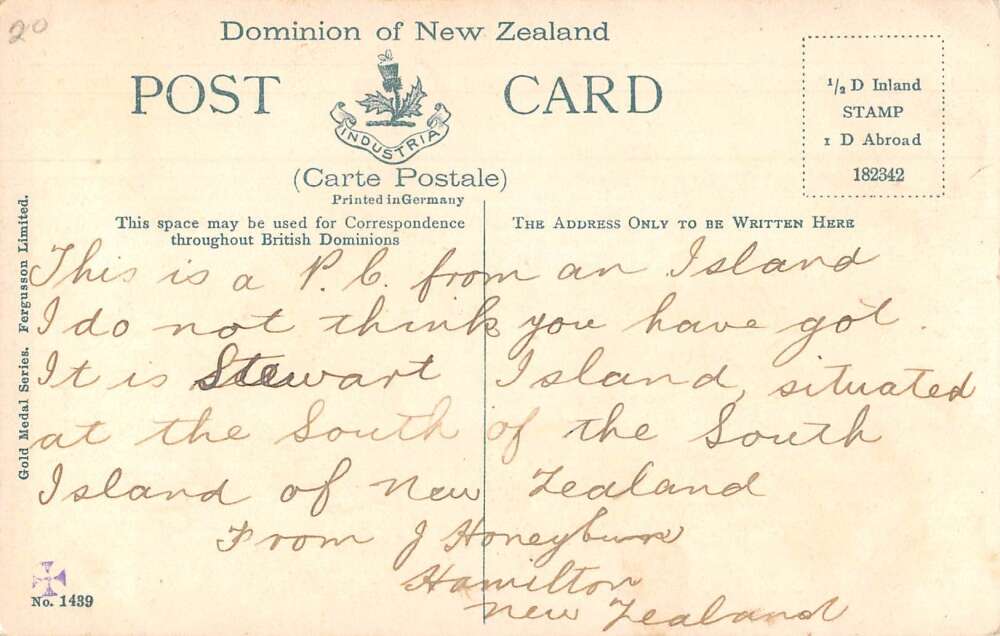 20
Dominion of New Zealand
POST CARD
INDUSTRIA
(Carte Postale)
Printed in Germany
1/2 D Inland
STAMP
1 D Abroad
182342
This space may be used for Correspondence
throughout British Dominions
THE ADDRESS ONLY TO BE WRITTEN HERE
This is a P.C. from an Island
I do not think you have got.
It is Stewart Island, situated
at the South of the South
Island of New Zealand
From J Honeybun
Hamilton
New Zealand
Gold Medal Series. Fergusson Limited.
No. 1439